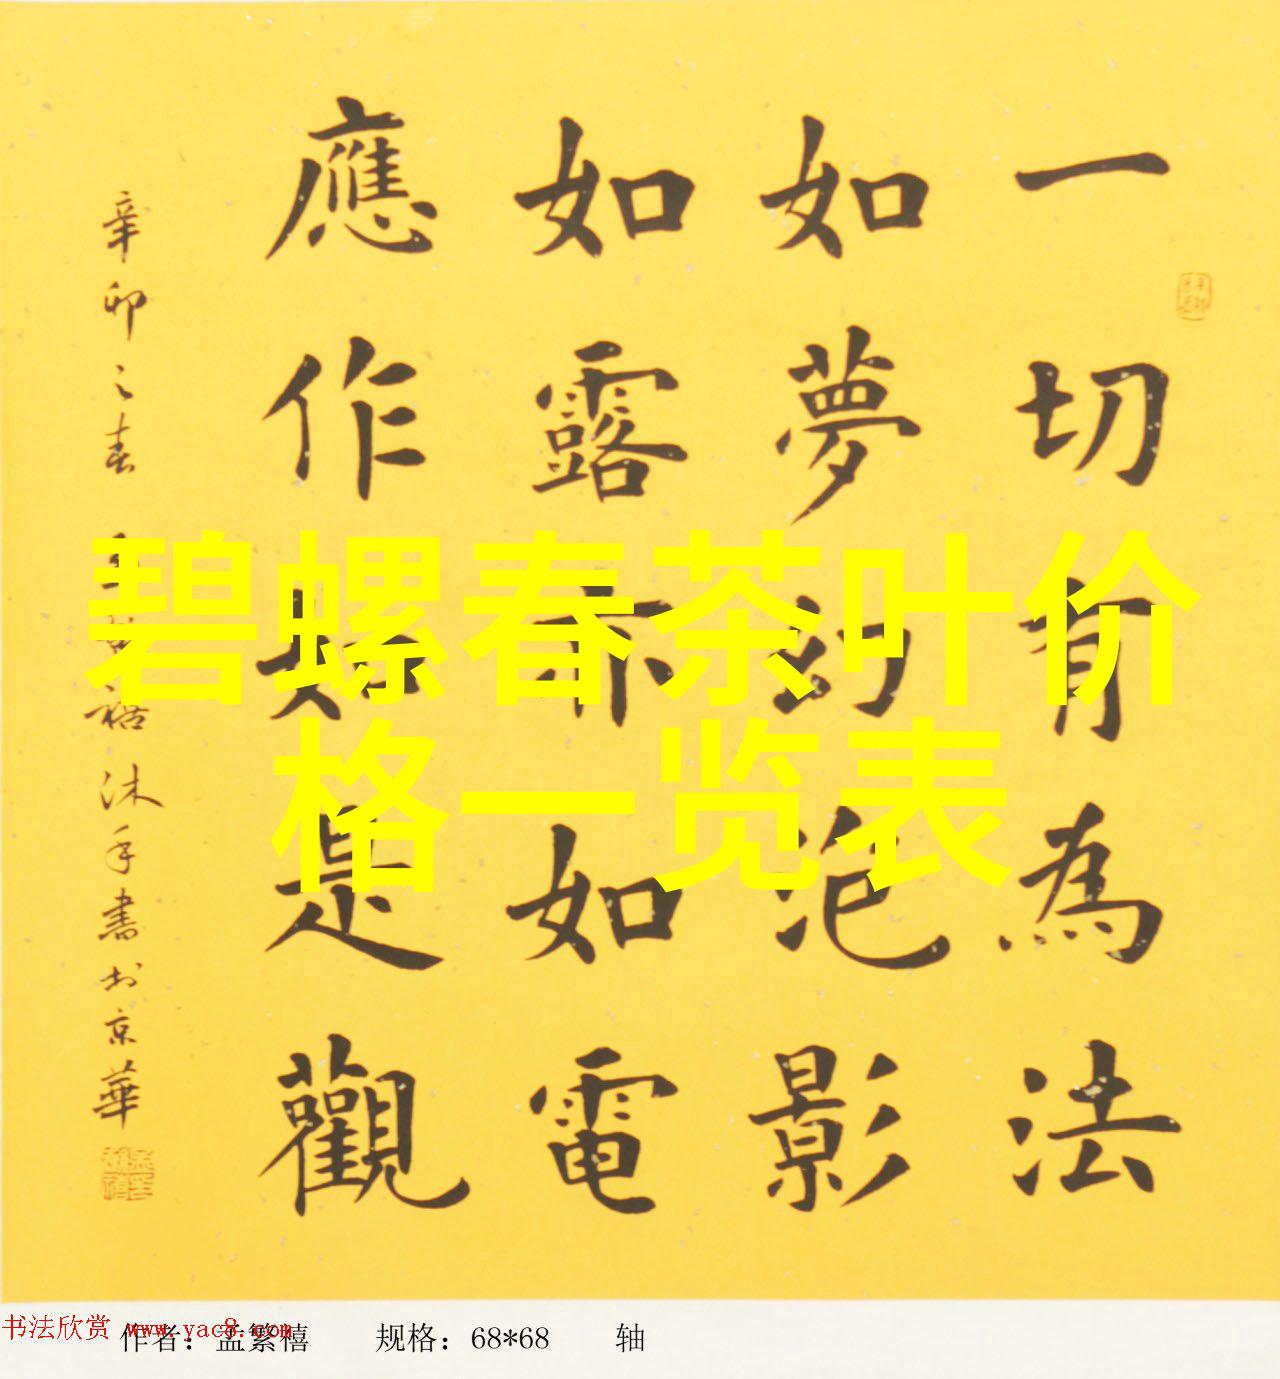 一切有為法
如夢幻泡影
如露亦如電
應作如是觀
辛卯之春 孟繁禧沐手書於京華
碧螺春茶叶价
格一览表
书法欣赏 www.yac8.com
作者：孟繁禧 规格：68*68 轴